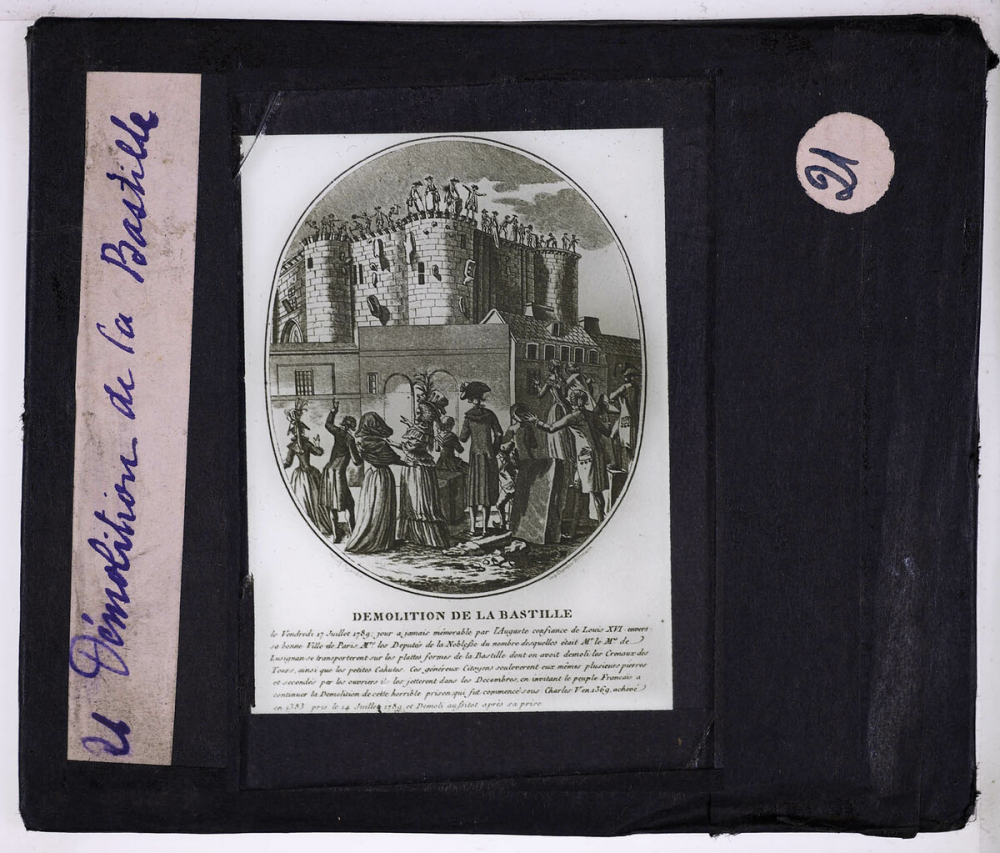 21 Démolition de la Bastille
21
DEMOLITION DE LA BASTILLE
le Vendredi 17 Juillet 1789; jour a jamais mémorable par l'Auguste confiance de Louis XVI envers
sa bonne Ville de Paris, Mrs. les Deputés de la Noblesse du nombre desquelles était Mr. le Mis. de
Lusignan se transporterent sur les plattes formes de la Bastille dont on avoit demoli les Crenaux des
Tours, ainsi que les petites Cahutes. Ces généreux Citoyens souleverent eux mêmes plusieurs pierres
et secondés par les ouvriers ils les jetterent dans les Decombres, en invitant le peuple Français a
continuer la Demolition de cette horrible prison qui fut commencé sous Charles V en 1369, achevé
en 1383 pris le 14 Juillet 1789 et Demoli aussitot après sa prise